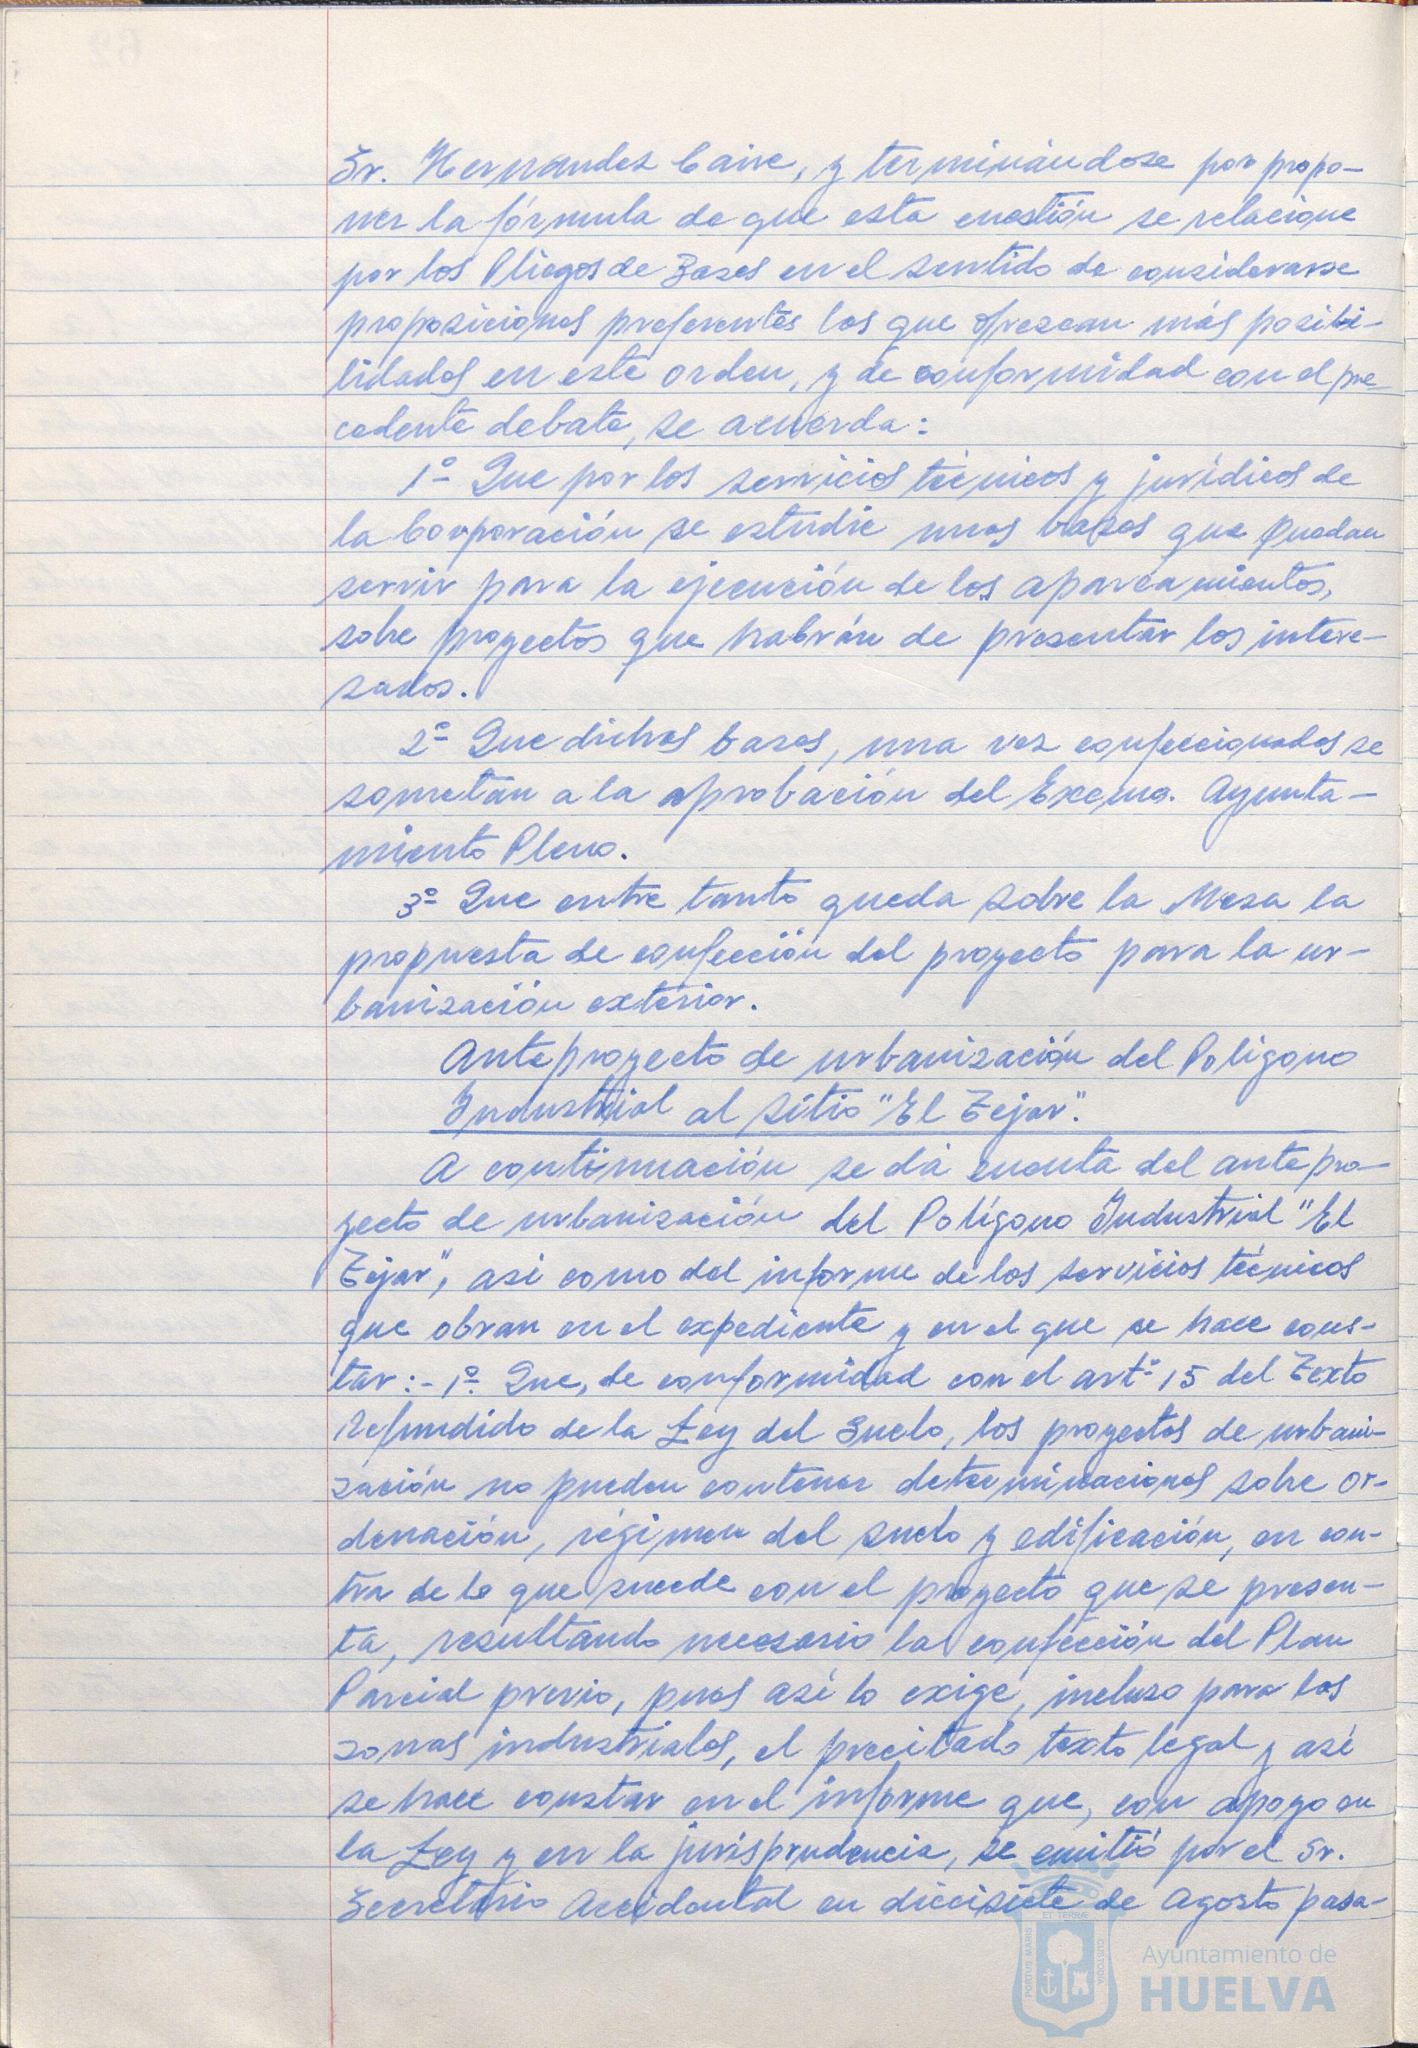 Sr. Hernandez Caire, y terminándose por propo-
ner la fórmula de que esta cuestión se relacione
por los Pliegos de Bases en el sentido de considerarse
proposiciones preferentes los que ofrezcan más posibi-
lidades en este orden, y de conformidad con el pre-
cedente debate, se acuerda:
1º Que por los servicios técnicos y jurídicos de
la Corporación se estudie unas bases que puedan
servir para la ejecución de los aparcamientos,
sobre proyectos que habrán de presentar los intere-
sados.
2º Que dichas bases, una vez confeccionadas se
sometan a la aprobación del Excmo. Ayunta-
miento Pleno.
3º Que entre tanto queda sobre la Mesa la
propuesta de confección del proyecto para la ur-
banización exterior.
Anteproyecto de urbanización del Poligono
Industrial al sitio "El Tejar".
A continuación se dá cuenta del antepro-
yecto de urbanización del Polígono Industrial "El
Tejar", asi como del informe de los servicios técnicos
que obran en el expediente y en el que se hace cons-
tar:- 1º. Que, de conformidad con el artº 15 del Texto
Refundido de la Ley del Suelo, los proyectos de urbani-
zación no pueden contener determinaciones sobre or-
denación, régimen del suelo y edificación, en con-
tra de lo que sucede con el proyecto que se presen-
ta, resultando necesario la confección del Plan
Parcial previo, pues así lo exige, incluso para las
zonas industriales, el precitado texto legal y así
se hace constar en el informe que, con apoyo en
la Ley y en la jurisprudencia, se emitió por el Sr.
Secretario Accidental en diecisiete de Agosto pasa-
PORTUS MARIS ET TERRE CUSTODIA
Ayuntamiento de
HUELVA